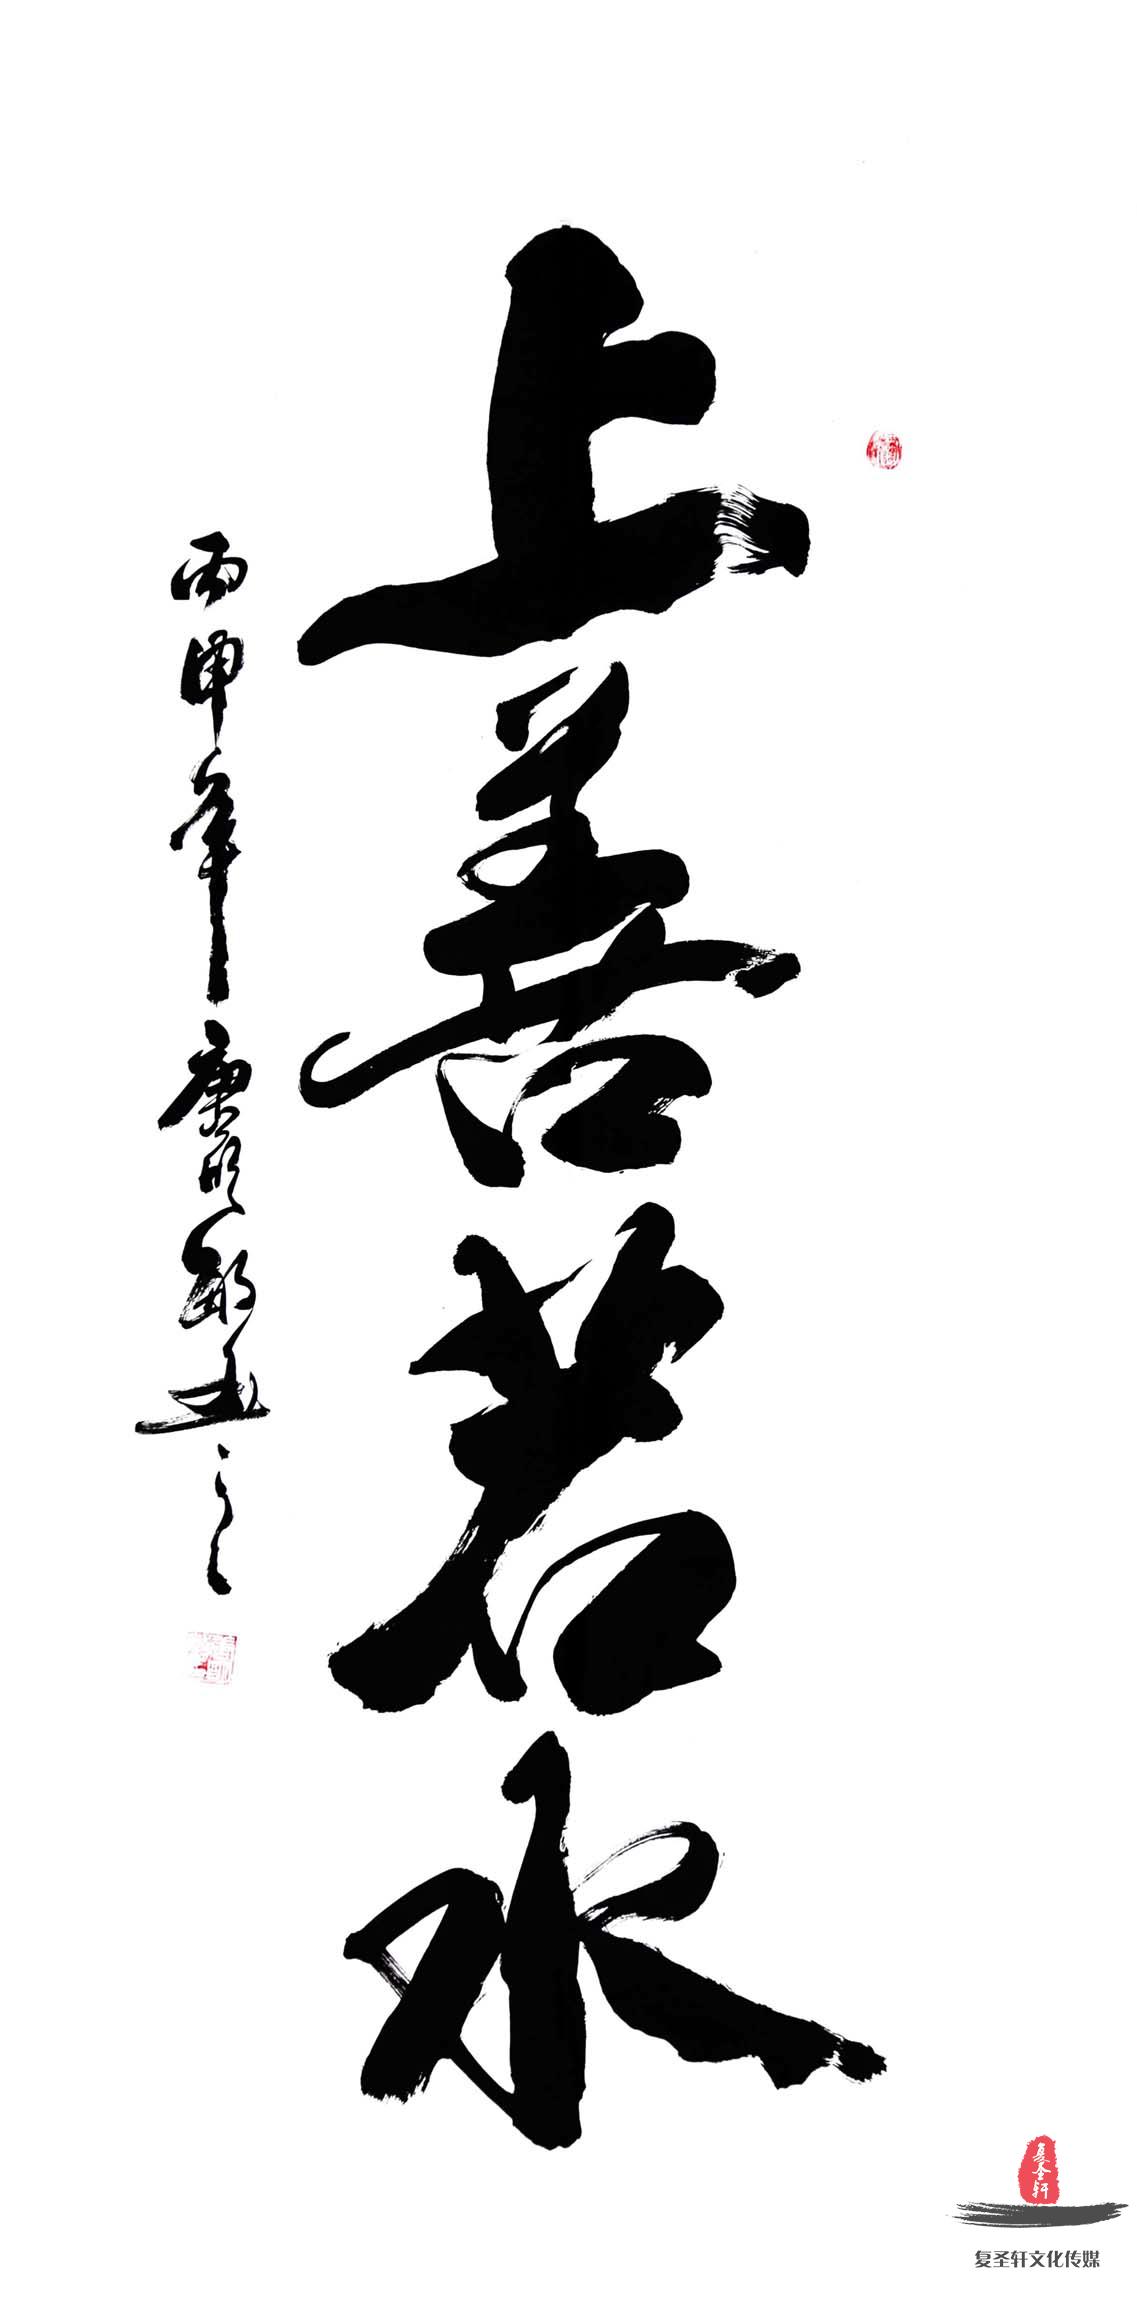 上善若水
丙申年 康明 敏書之
复圣轩
复圣轩文化传媒